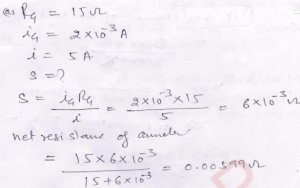 (a) R_G = 15 Ω
i_G = 2×10⁻³ A
i = 5 A
S = ?
S = i_G R_G / i = 2×10⁻³ × 15 / 5 = 6×10⁻³ Ω
net resistane of ammeter
= 15×6×10⁻³ / 15+6×10⁻³ = 0.00599 Ω